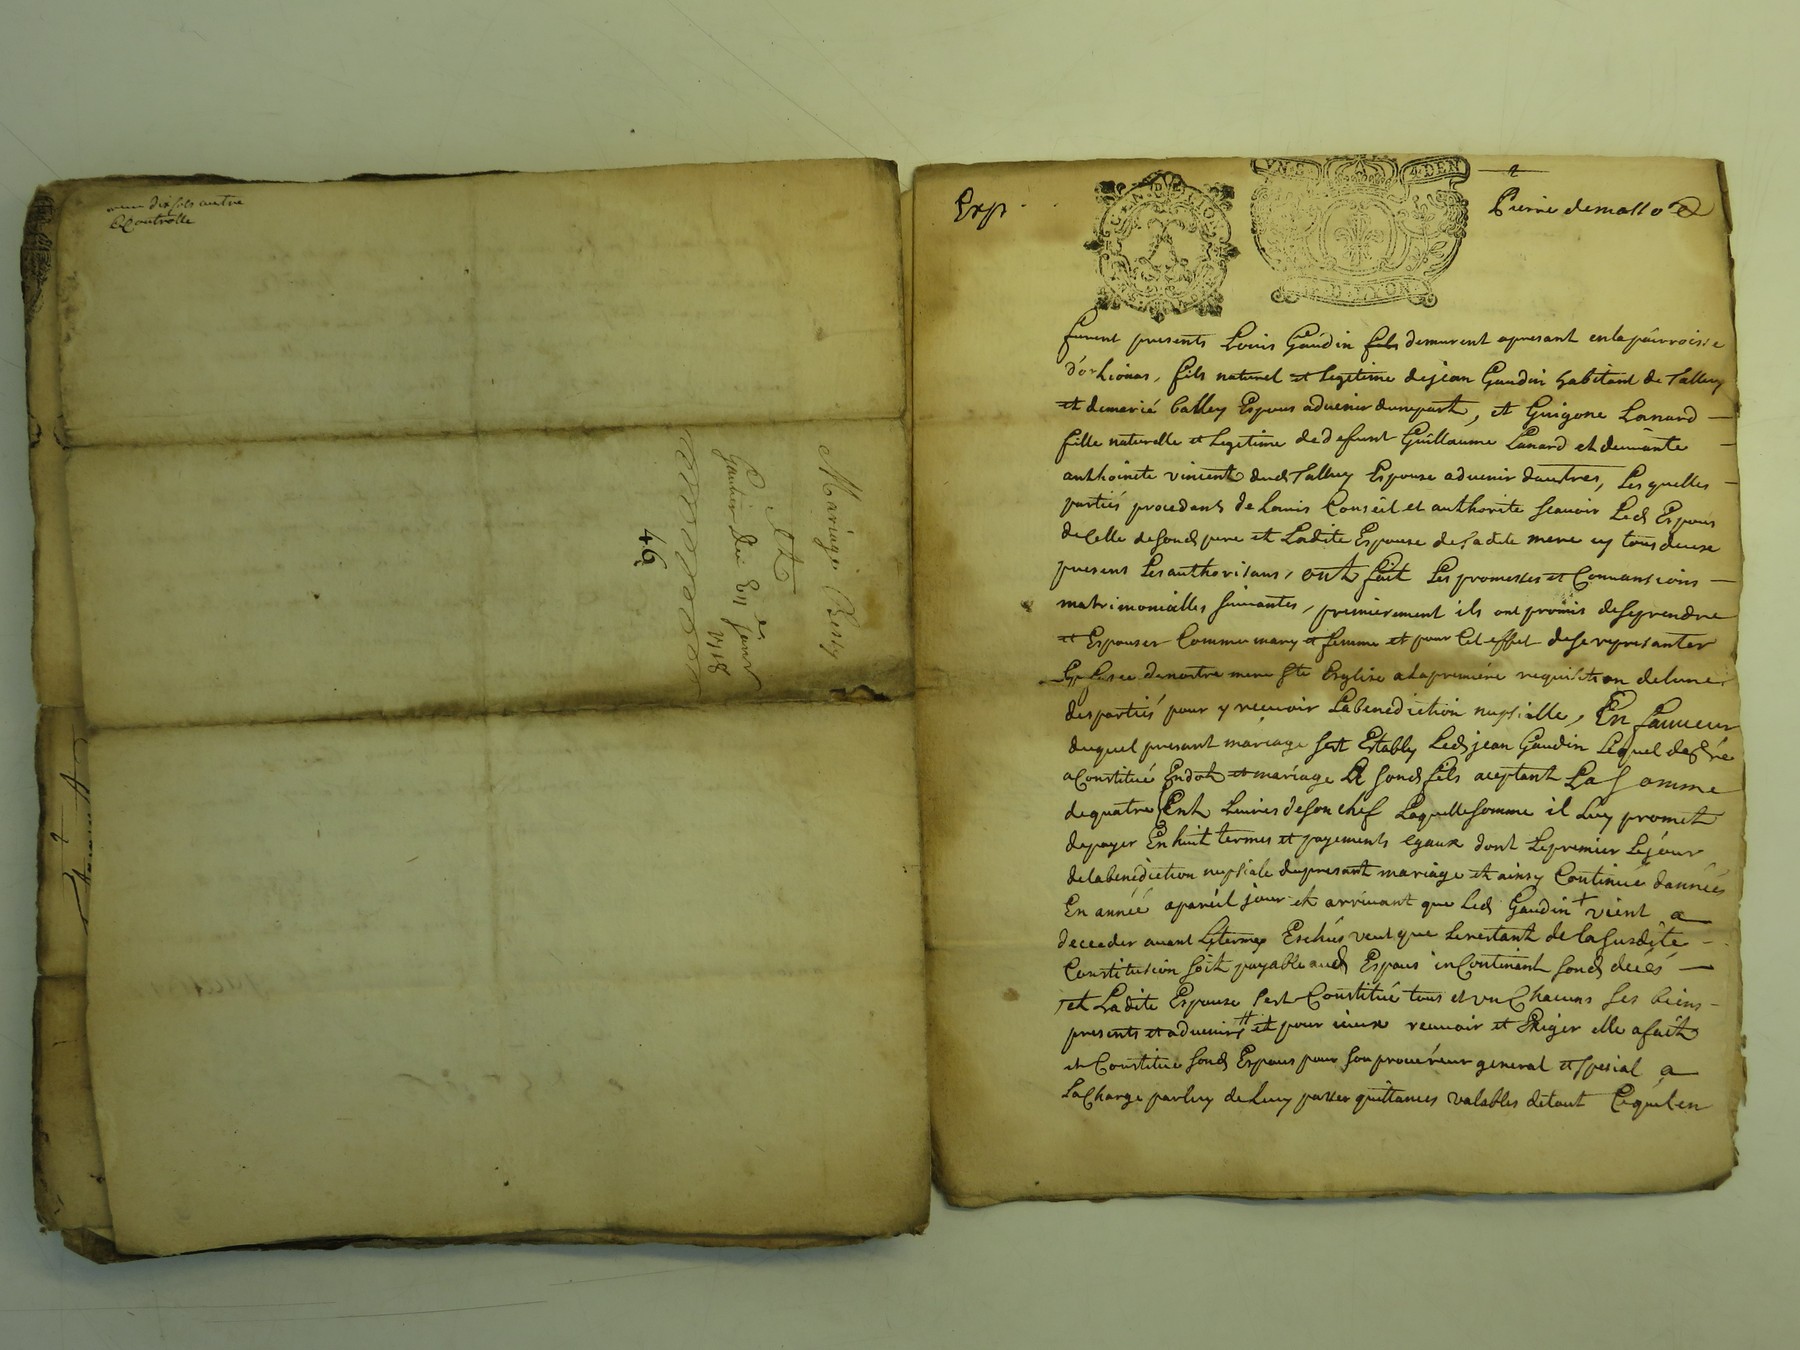 dix sols
Controlle
Mariage Bessy
Et
Gautier du En Janer
1718
46
Exp.
GEN DE LYON
VN S 4 DEN
G. D. LYON
2
Pierre demasso
furent presents Louis Gaudin fils demurent apresant en la pairroisse
d'orlienas, fils naturel et legitime de jean Gaudin habitant de Talluy
et de marié balley Espous advenir dunepart, et Guigone Lonard
fille naturelle et Legitime de defunt Guillaume Lanard et de
anthoinete vincent dud Talluy Espouse advenir dautres, Lesquelles
partiés procedant de Lauis Conseil et authorite scauoir Led Espous
de Celle de sond pere et Ladite Espouse de sadite mere cy tous deux
presens Les authorisans, ont fait Les promesses et Conuansions
matrimonialles suiuantes, premierement ils ont promis de se prendre
et Espouser Comme mary et femme et pour Cet effet de se represanter
En face de nostre mere Ste Esglise a la premiére requisition de lune
des partiés pour y receuoir La benediction nupsialle, En faueur
duquel presant mariage sest Estably Led jean Gaudin Lequel de gré
a Constitué En dot et mariage A sond fils aceptant La Somme
de quatre Cent Liures de son chef Laquelle somme il Luy promet
de payer En huit termes et payements egaux dont Le premier Le jour
de la benediction nupsiale du presant mariage et ainsy Continué dannées
En année a pareil jour et arriuant que Led Gaudin + vient a
deceder auant Les termes Eschus veut que Le restant de la susdite
Constitusion soit payable aud Espous in Continent sond decés
et Ladite Espouse sest Constitué tous et vn Chacuns ses biens
presents et aduenirs # et pour iceux receuoir et Exiger elle a fait
et Constitué sond Espous pour son procureur general et spesial a
La Charge par luy de Luy passer quittances valables de tout Ce quil en